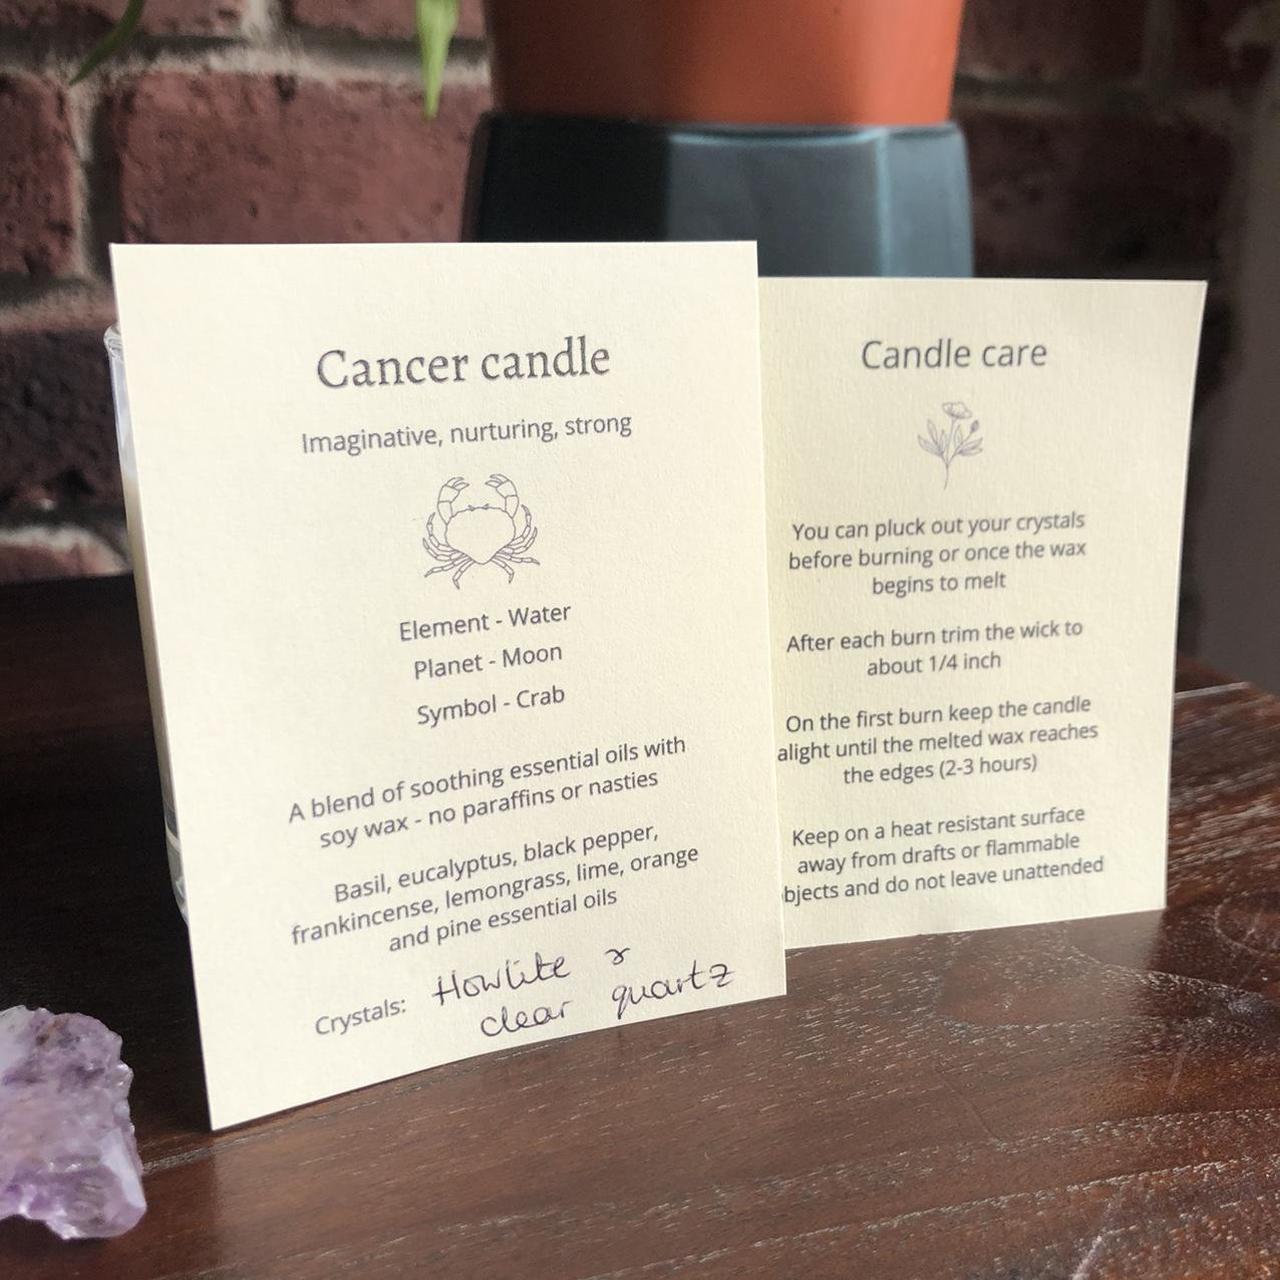 Cancer candle
Imaginative, nurturing, strong
Element - Water
Planet - Moon
Symbol - Crab
A blend of soothing essential oils with
soy wax - no paraffins or nasties
Basil, eucalyptus, black pepper,
frankincense, lemongrass, lime, orange
and pine essential oils
Crystals: Howlite &
clear quartz
Candle care
You can pluck out your crystals
before burning or once the wax
begins to melt
After each burn trim the wick to
about 1/4 inch
On the first burn keep the candle
alight until the melted wax reaches
the edges (2-3 hours)
Keep on a heat resistant surface
away from drafts or flammable
bjects and do not leave unattended